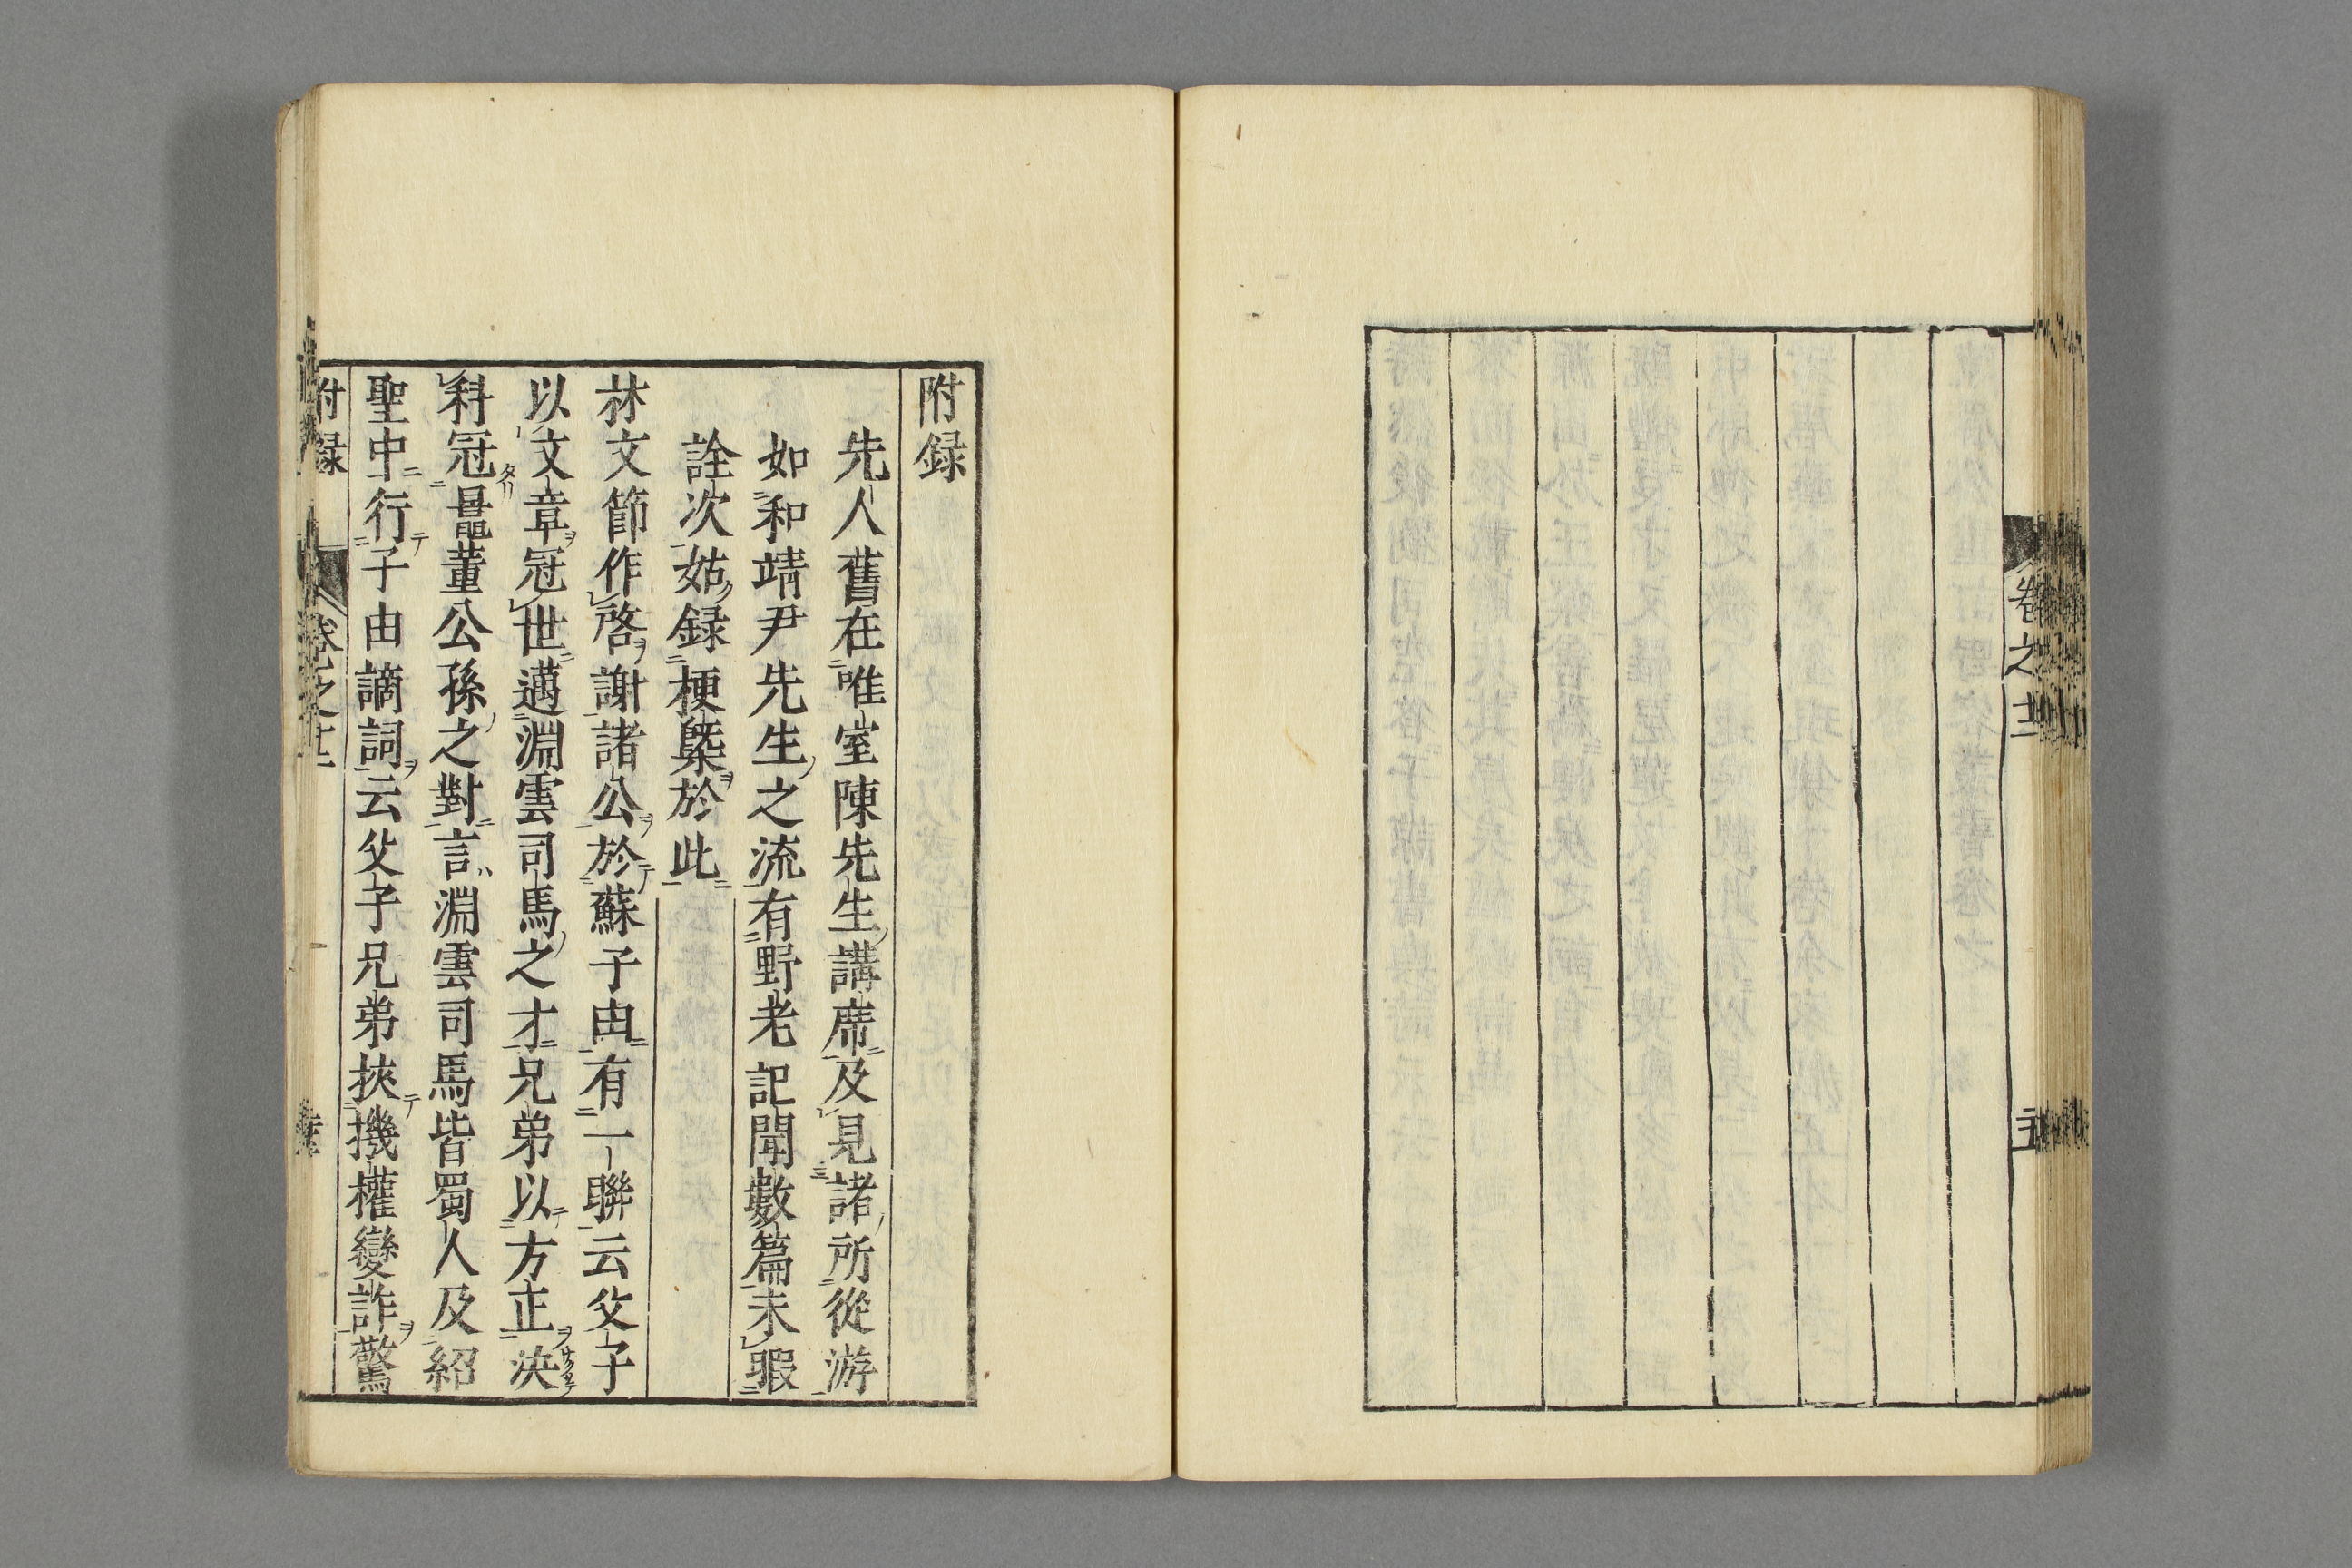 卷之十二
附録
先人舊在唯室陳先生講席及見諸所從游
如和靖尹先生之流有野老記聞數篇未暇
詮次姑録梗槩於此
林文節作啓謝諸公於蘇子由有一聯云父子
以文章冠世邁淵雲司馬之才兄弟以方正決
科冠鼂董公孫之對言淵雲司馬皆蜀人及紹
聖中行子由謫詞云父子兄弟挾機權變詐驚
附録
卷之十二